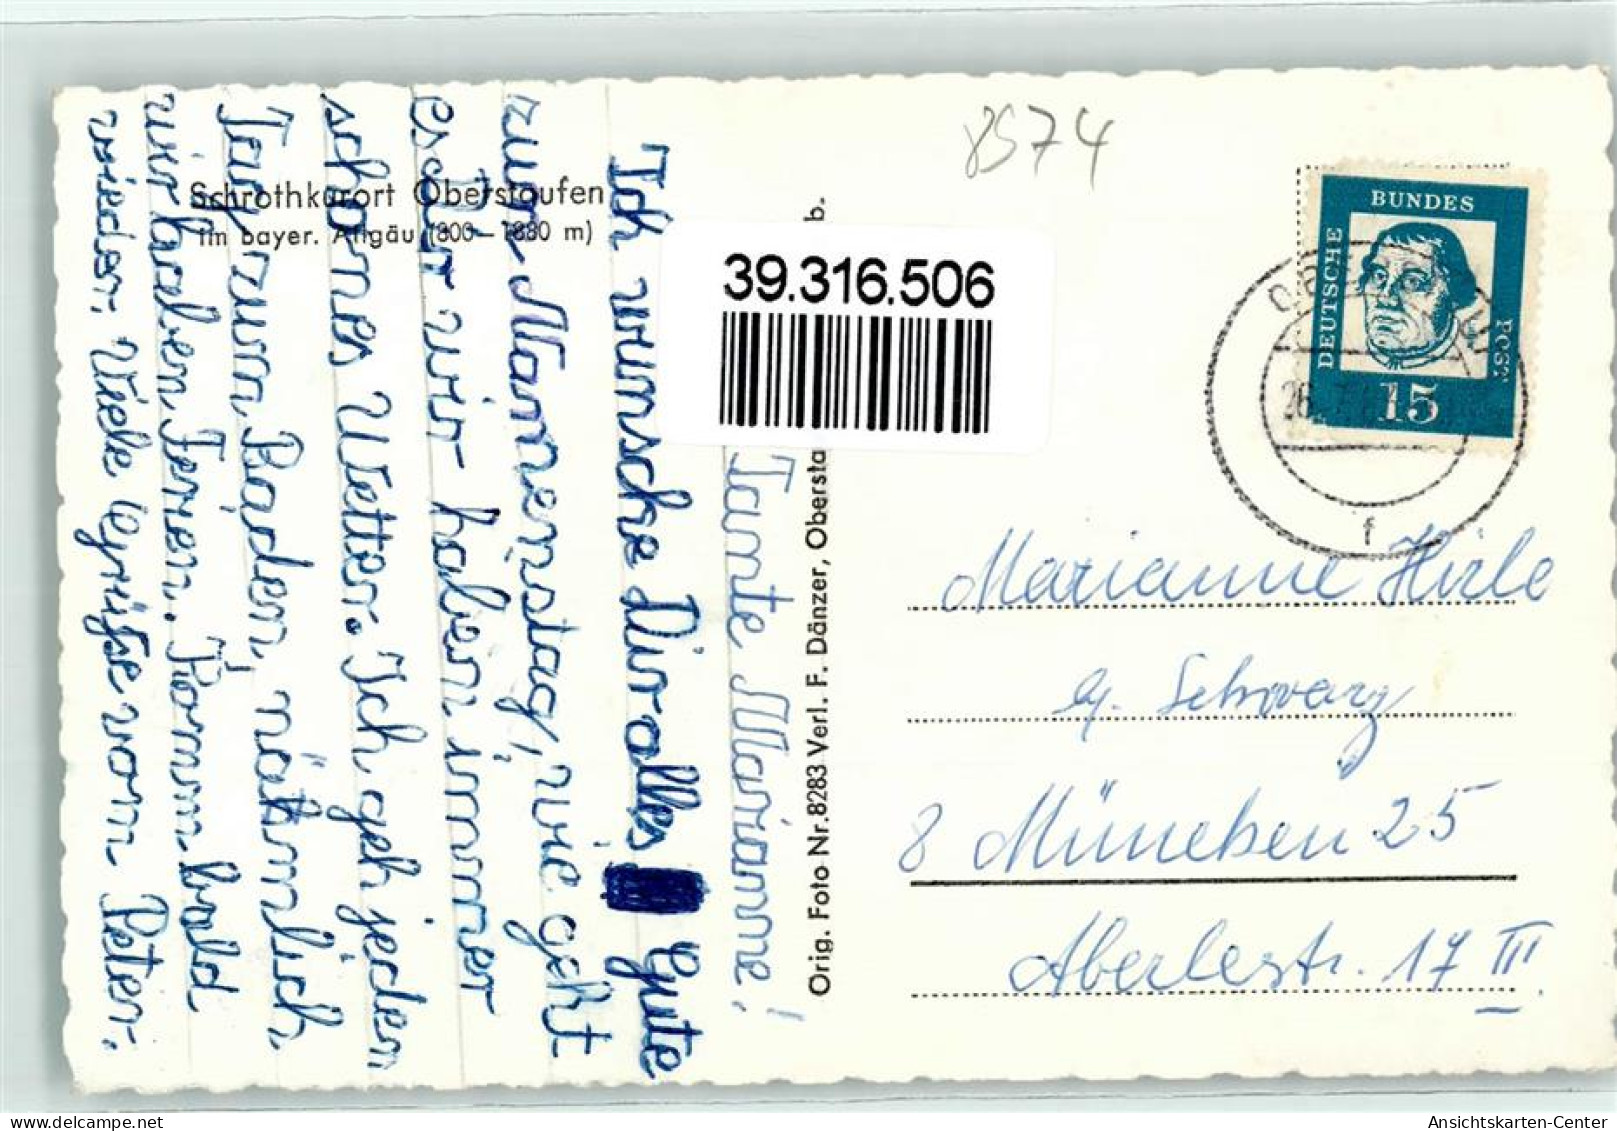 8974
Schrothkurort Oberstaufen
im bayer. Allgäu (800–1880 m)
39.316.506
Orig. Foto Nr. 8283 Verl. F. Dänzer, Obersta b.
DEUTSCHE BUNDES POST
15
26.
f
Tante Marianne!
Ich wünsche Dir alles Gute
zum Namenstag, wie geht
es Dir wir haben immer
schönes Wetter. Ich geh jeden
Tag zum Baden, nähmlich
wir haben Ferien. Komm bald
wieder. Viele Grüße vom Peter.
Marianne Hirle
b/. Schwarz
8 München 25
Aberlestr. 17 III.
Ansichtskarten-Center